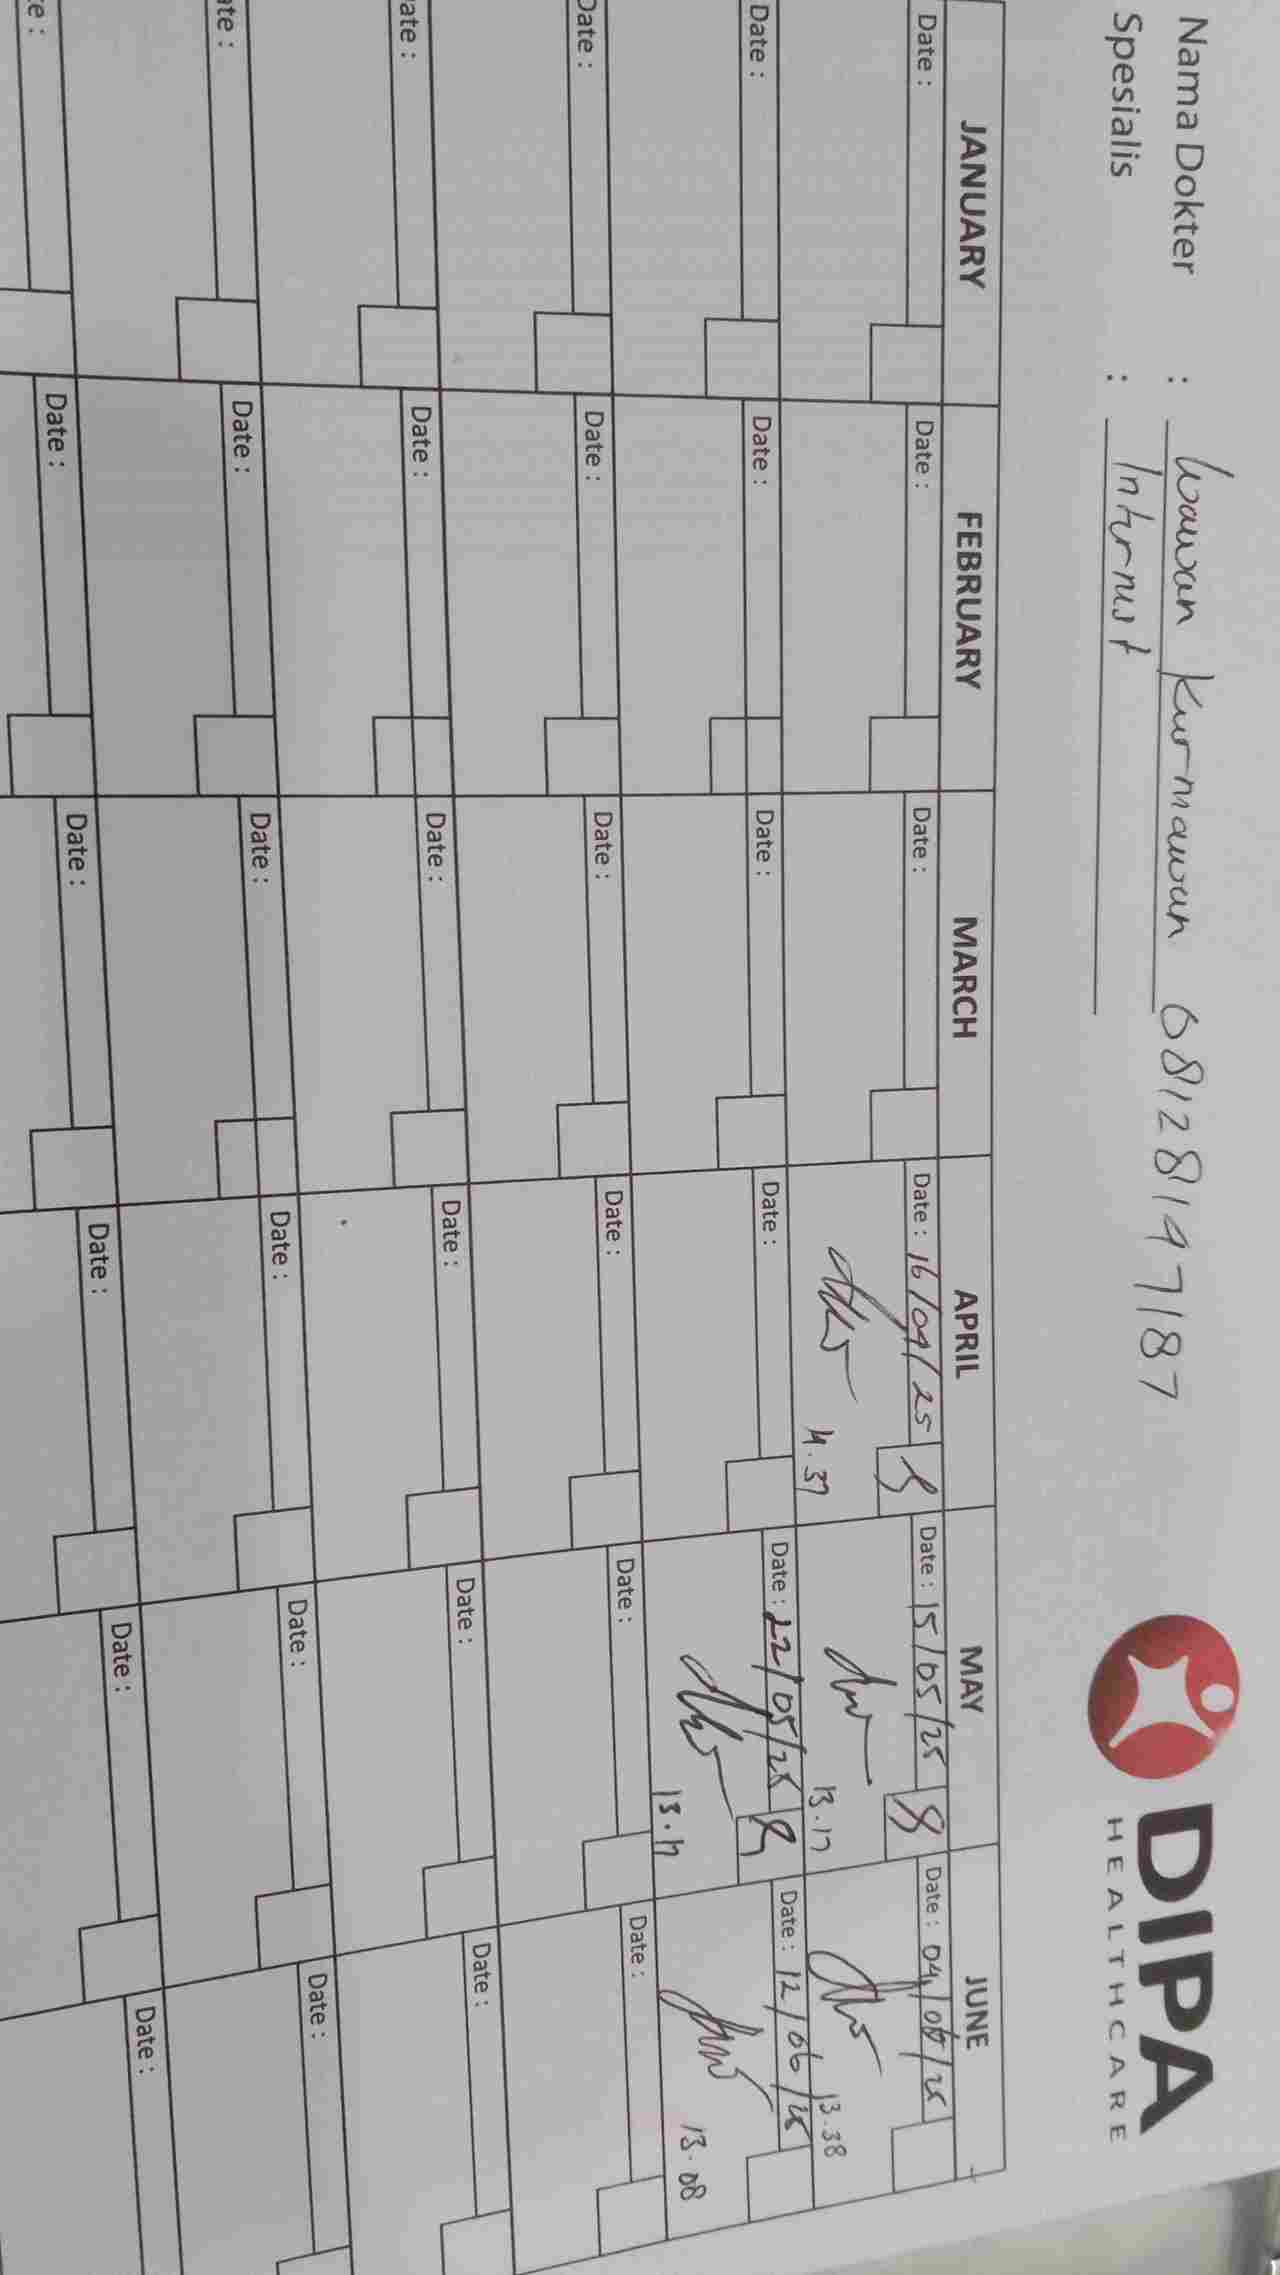 Nama Dokter : Wawan Kurniawan 081281197187
Spesialis : Internist
DIPA
HEALTHCARE
JANUARY FEBRUARY MARCH APRIL MAY JUNE
Date : Date : Date : Date : 16/04/25 Date : 15/05/25 Date : 04/06/25
14.37 13.17 13.38
Date : Date : Date : Date : Date : 22/05/25 Date : 12/06/25
13.17 13.08
Date : Date : Date : Date : Date : Date :
Date : Date : Date : Date : Date : Date :
Date : Date : Date : Date : Date : Date :
Date : Date : Date : Date : Date : Date :